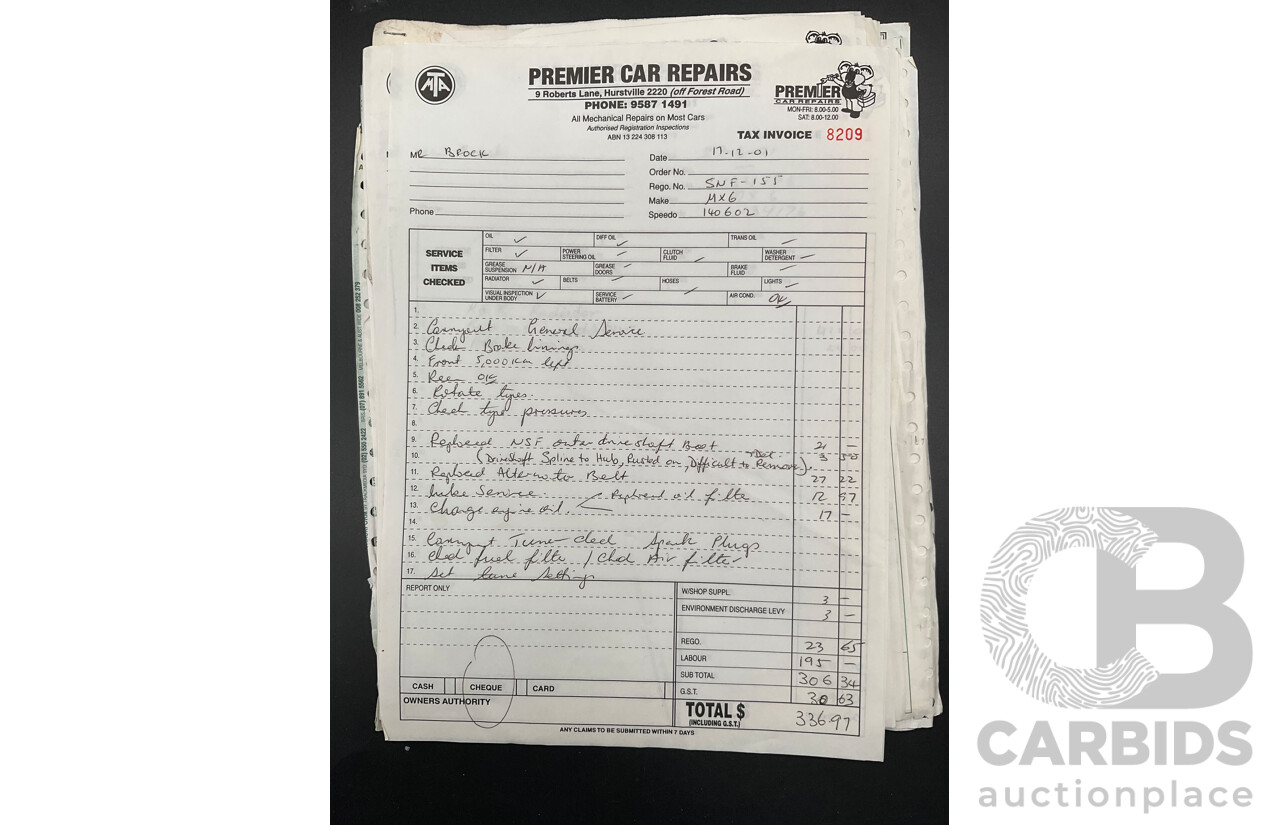 MTA
PREMIER CAR REPAIRS
9 Roberts Lane, Hurstville 2220 (off Forest Road)
PHONE: 9587 1491
All Mechanical Repairs on Most Cars
Authorised Registration Inspections
ABN 13 224 308 113
PREMIER
CAR REPAIRS
MON-FRI: 8.00-5.00
SAT: 8.00-12.00
TAX INVOICE 8209
MR BROCK
Date 17-12-01
Order No.
Rego. No. SNF-155
Make MX6
Phone
Speedo 140602
SERVICE ITEMS CHECKED
OIL ✓ DIFF OIL ✓ TRANS OIL
FILTER ✓ POWER STEERING OIL CLUTCH FLUID WASHER DETERGENT
GREASE SUSPENSION N/A GREASE DOORS BRAKE FLUID
RADIATOR ✓ BELTS HOSES LIGHTS
VISUAL INSPECTION UNDER BODY ✓ SERVICE BATTERY AIR COND. OK
1.
2. Carryout General Service
3. Check Brake linings
4. Front 5,000 Km left
5. Rear OK
6. Rotate tyres.
7. Check tyre pressures
8.
9. Replaced NSF outer driveshaft Boot 21 —
10. (Driveshaft Spline to Hub, Rusted on, Difficult to Remove). 3 50
11. Replaced Alternator Belt 27 22
12. Lube Service Replaced oil filter 12 97
13. Change engine oil. 17 —
14.
15. Carryout Tune - check Spark Plugs
16. Check fuel filter / Check Air filter
17. Set tune settings
REPORT ONLY
W/SHOP SUPPL. 3 —
ENVIRONMENT DISCHARGE LEVY 3 —
REGO. 23 65
LABOUR 195 —
SUB TOTAL 306 34
G.S.T. 30 63
CASH CHEQUE CARD
OWNERS AUTHORITY
TOTAL $ 336.97
(INCLUDING G.S.T.)
ANY CLAIMS TO BE SUBMITTED WITHIN 7 DAYS
CB
CARBIDS
auctionplace